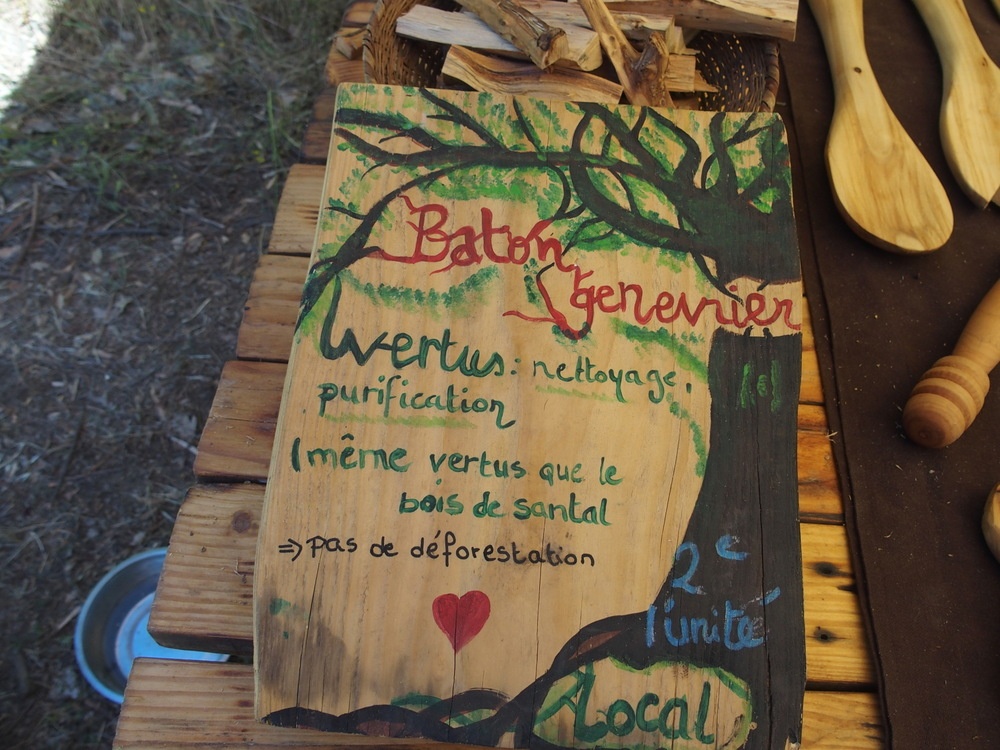 Baton
genevrier
vertus: nettoyage,
purification
même vertus que le
bois de santal
=> pas de déforestation
2€
l'unité
Local